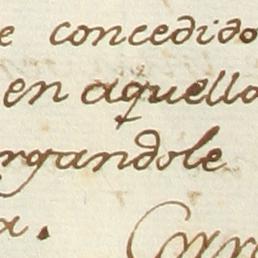 e concedido
en aquello
rgandole
a.